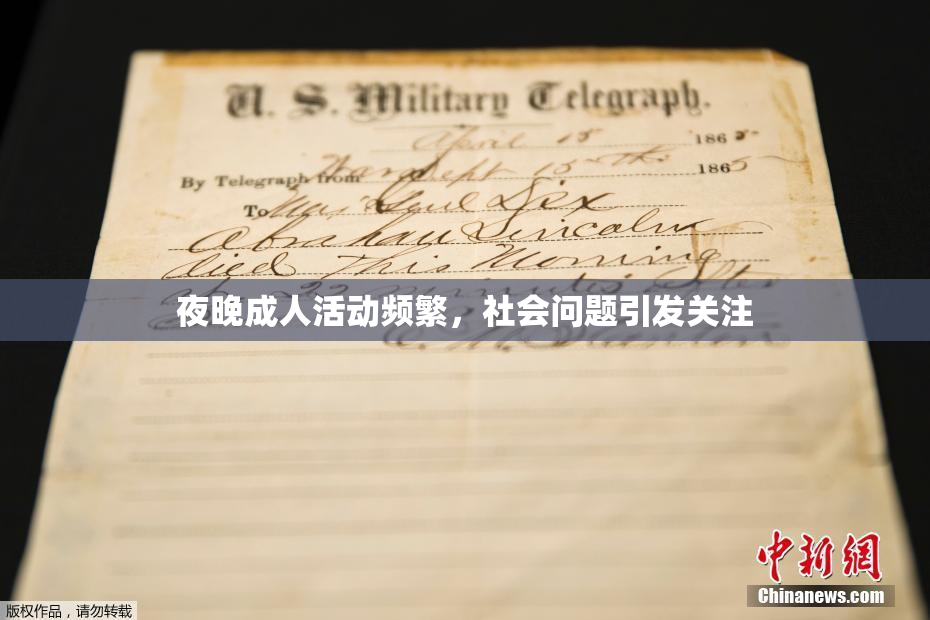 U. S. Military Telegraph.
April 15 1865
By Telegraph from War Dept 15th 1865
To Maj Genl Dix
Abraham Lincoln
died This Morning
at 22 minutes after
夜晚成人活动频繁，社会问题引发关注
E. M. Stanton
中新網
Chinanews.com
版权作品，请勿转载